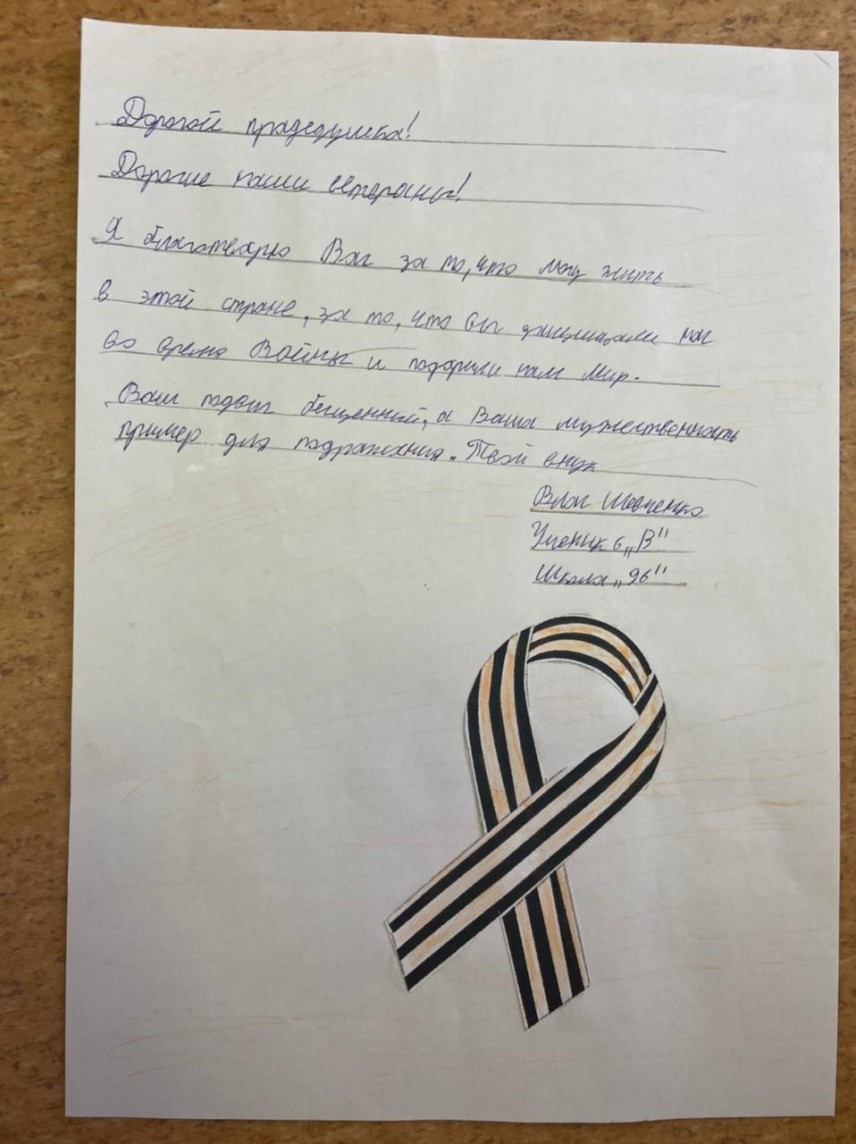 Дорогой прадедушка!
Дорогие наши ветераны!
Я благотворю Вас за то, что могу жить
в этой стране, за то, что вы защищали нас
во время Войны и подарили нам Мир.
Ваш подвиг бесценный, а Ваша мужественность
пример для подражания. Твой внук
Влас Шевченко
Ученик 6 „В"
Школа „96"